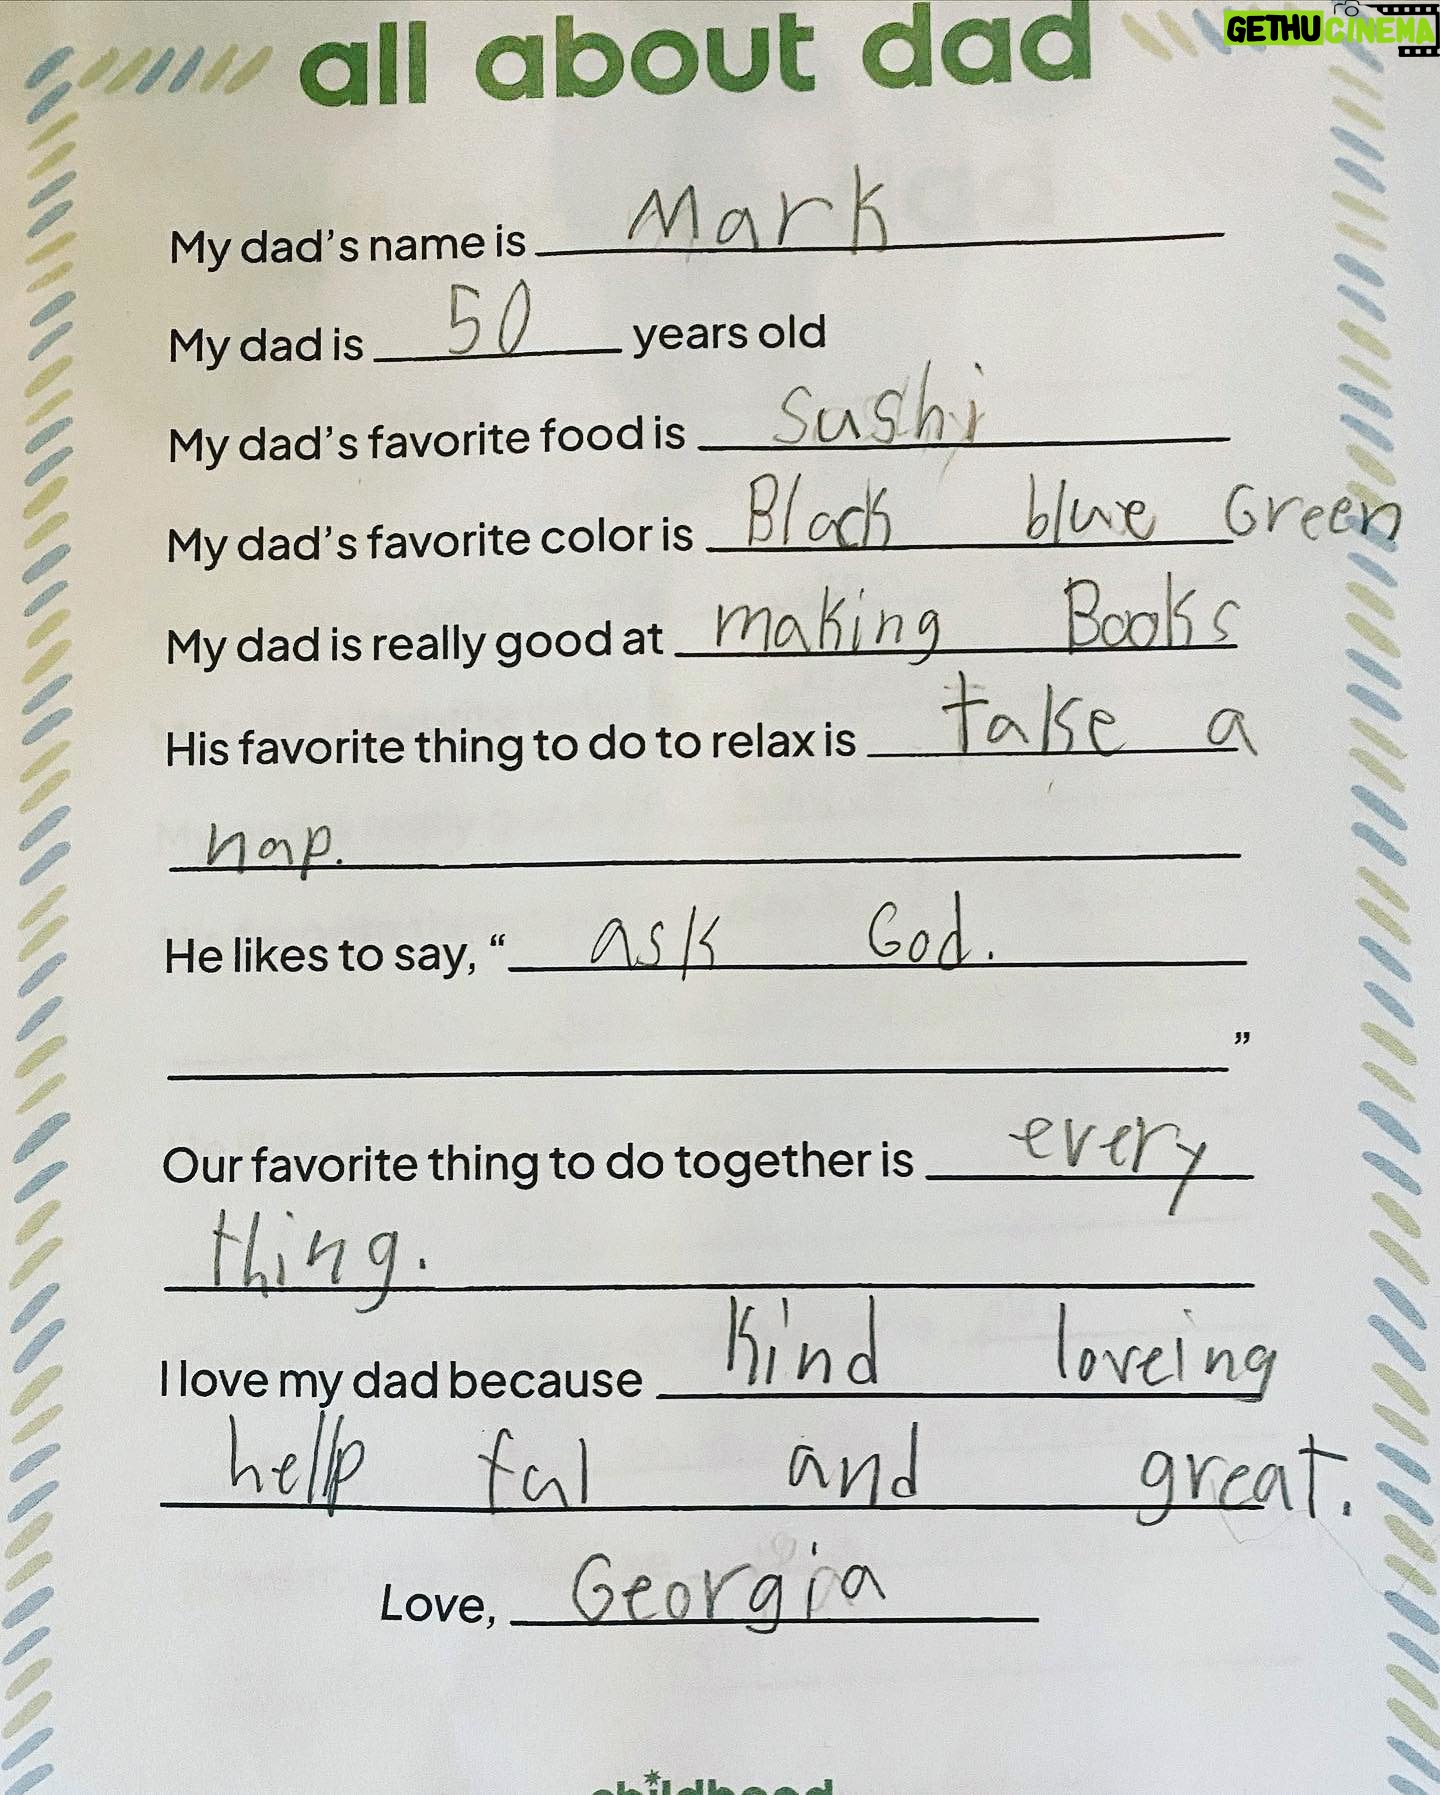 GETHUCINEMA
all about dad
My dad's name is Mark
My dad is 50 years old
My dad's favorite food is Sushi
My dad's favorite color is Black blue Green
My dad is really good at making Books
His favorite thing to do to relax is take a
nap.
He likes to say, “ ask God.
”
Our favorite thing to do together is every
thing.
I love my dad because kind loveing
help ful and great.
Love, Georgia
childhood